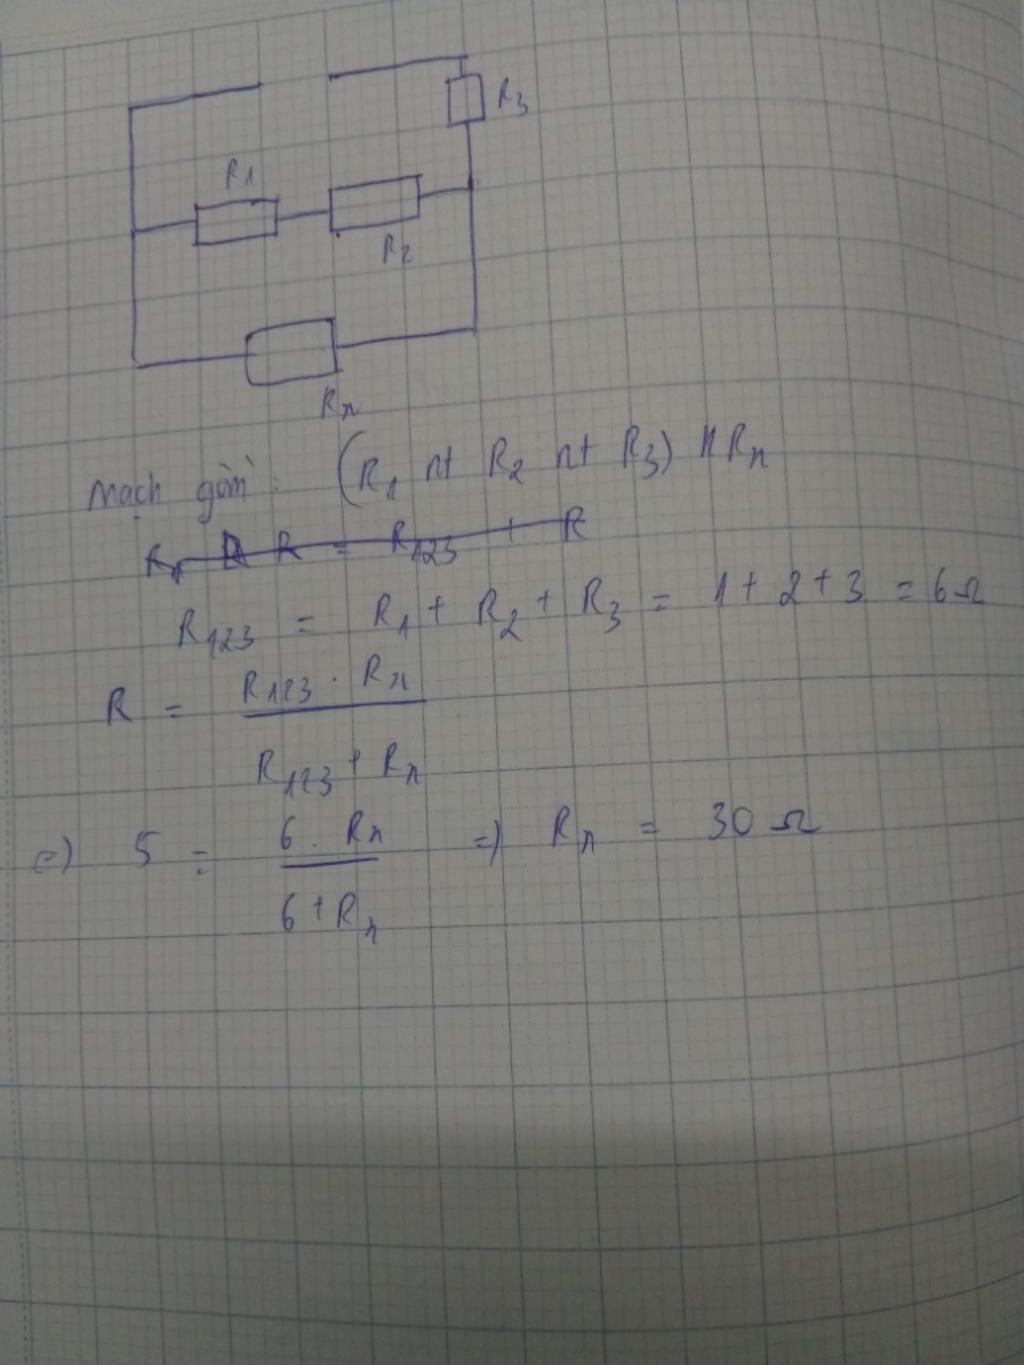 R3
R1
R2
Rx
Mạch gồm: (R1 nt R2 nt R3) // Rx
R = R123 + R
R123 = R1 + R2 + R3 = 1 + 2 + 3 = 6Ω
R = R123 . Rx
R123 + Rx
=) 5 = 6 . Rx =) Rx = 30 Ω
6 + Rx